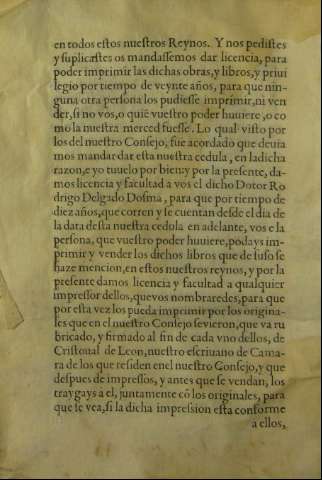 en todos estos nuestros Reynos. Y nos pedistes
y suplicastes os mandassemos dar licencia, para
poder imprimir las dichas obras, y libros, y priui
legio por tiempo de veynte años, para que nin-
guna otra persona los pudiesse imprimir, ni ven
der, si no vos, o quiē vuestro poder huuiere, o co
mo la nuestra merced fuesse. Lo qual visto por
los del nuestro Consejo, fue acordado que deuia
mos mandar dar esta nuestra cedula, en la dicha
razon, e yo tuuelo por bien: y por la presente, da-
mos licencia y facultad a vos el dicho Dotor Ro
drigo Delgado Dosma, para que por tiempo de
diez años, que corren y se cuentan desde el dia de
la data desta nuestra cedula en adelante, vos e la
persona, que vuestro poder huuiere, podays im-
primir y vender los dichos libros que de suso se
haze mencion, en estos nuestros reynos, y por la
presente damos licencia y facultad a qualquier
impressor dellos, que vos nombraredes, para que
por esta vez los pueda imprimir por los origina-
les que en el nuestro Consejo se vieron, que va ru
bricado, y firmado al fin de cada vno dellos, de
Cristoual de Leon, nuestro escriuano de Cama-
ra de los que residen en el nuestro Consejo, y que
despues de impressos, y antes que se vendan, los
traygays a el, juntamente cō los originales, para
que se vea, si la dicha impression esta conforme
a ellos,